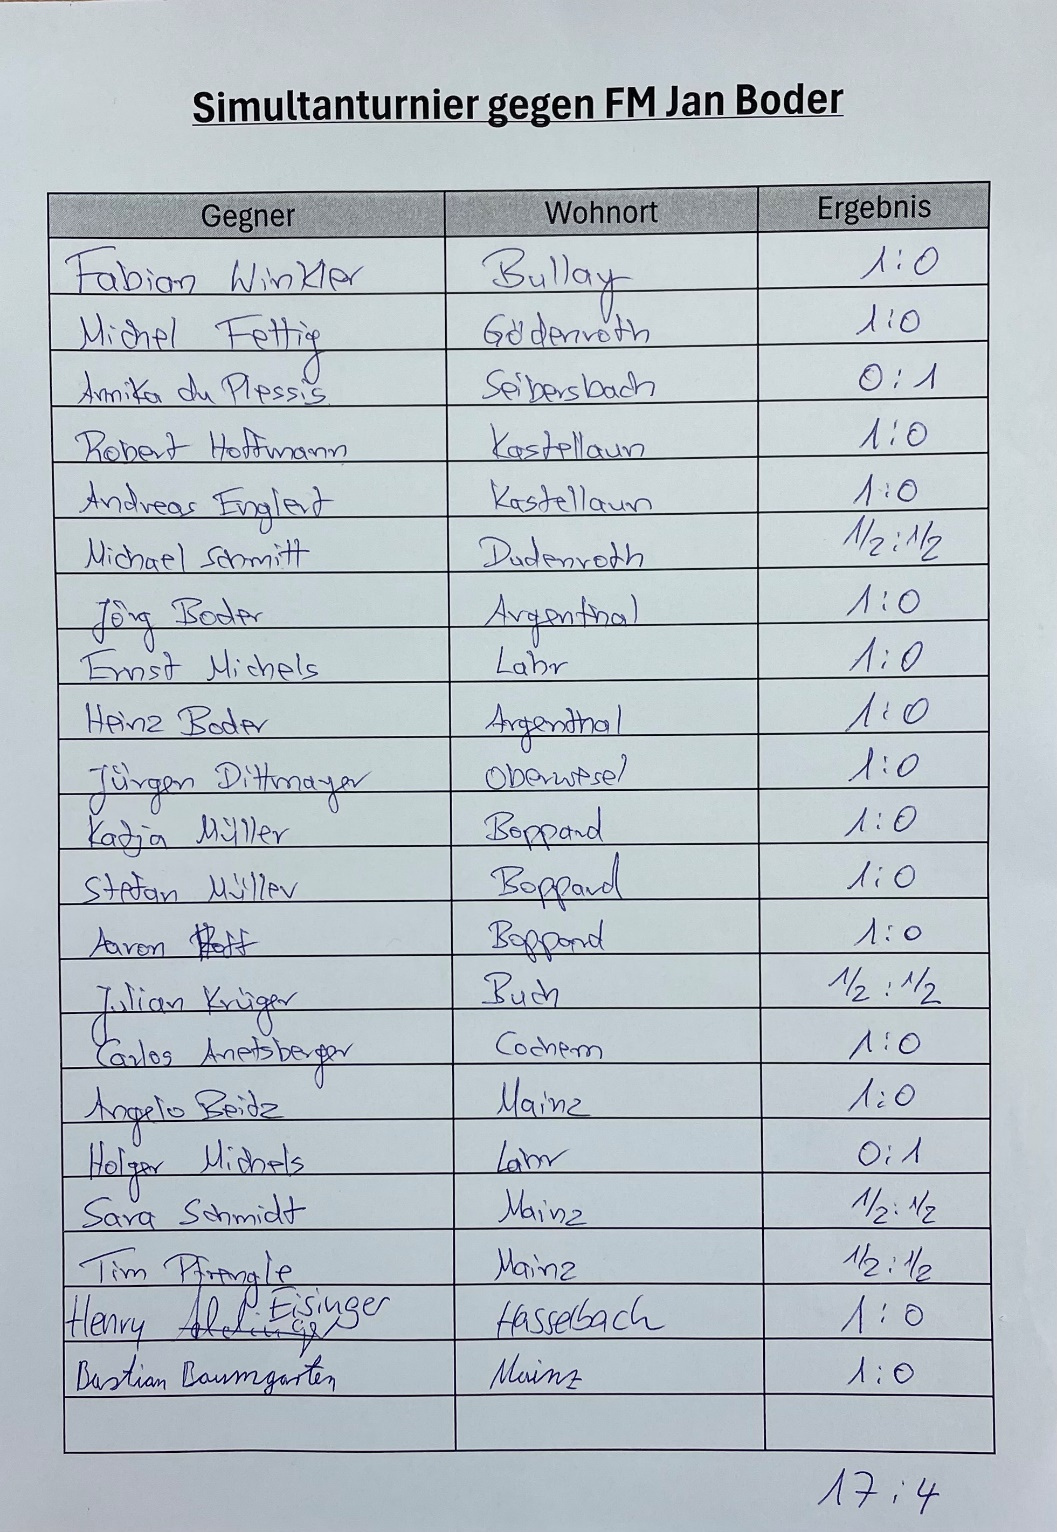 Simultanturnier gegen FM Jan Boder
Gegner Wohnort Ergebnis
Fabian Winkler Bullay 1:0
Michel Fettig Gödenroth 1:0
Annika du Plessis Seibersbach 0:1
Robert Hoffmann Kastellaun 1:0
Andreas Englert Kastellaun 1:0
Michael Schmitt Dudenroth 1/2:1/2
Jörg Boder Argenthal 1:0
Ernst Michels Lahr 1:0
Heinz Boder Argenthal 1:0
Jürgen Dittmayer Oberwesel 1:0
Katja Müller Boppard 1:0
Stefan Müller Boppard 1:0
Aaron Boppard 1:0
Julian Krüger Buch 1/2:1/2
Carlos Anetsberger Cochem 1:0
Angelo Beitz Mainz 1:0
Holger Michels Lahr 0:1
Sara Schmidt Mainz 1/2:1/2
Tim Pfrengle Mainz 1/2:1/2
Henry Eisinger Hasselbach 1:0
Bastian Baumgarten Mainz 1:0
17:4